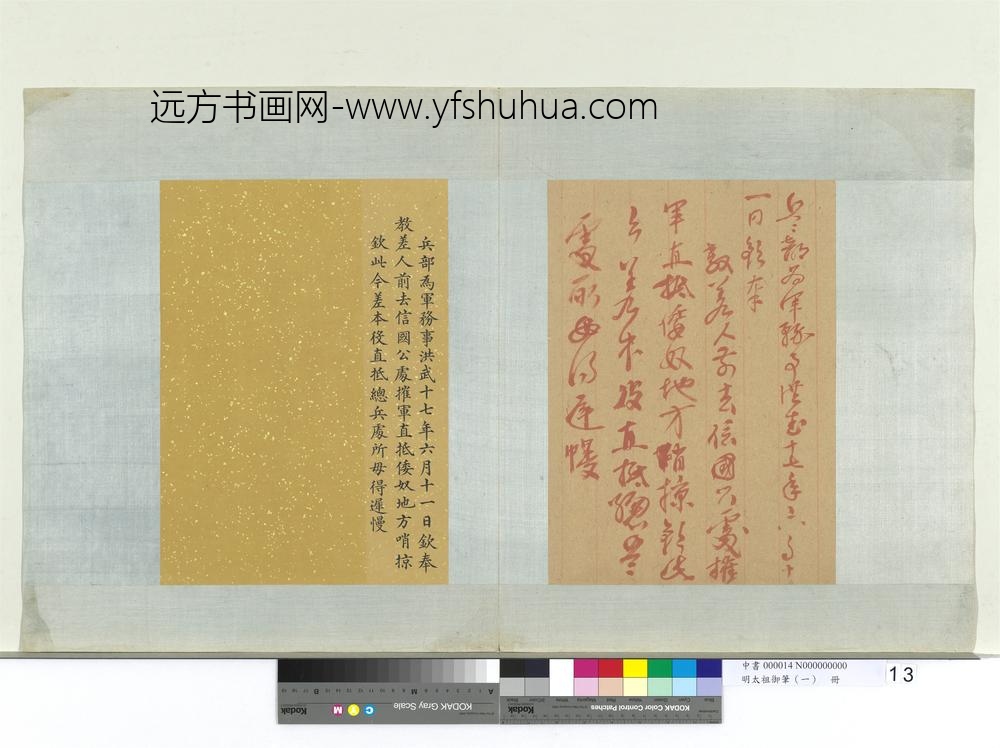 远方书画网-www.yfshuhua.com
兵部為軍務事洪武十七年六月十
一日欽奉
教差人前去信國公處摧
軍直抵倭奴地方哨掠欽此
今差本役直抵總兵
處所毋得遲慢
兵部為軍務事洪武十七年六月十一日欽奉
教差人前去信國公處摧軍直抵倭奴地方哨掠
欽此今差本役直抵總兵處所毋得遲慢
Kodak Gray Scale
C Y M
KODAK Color Control Patches
中書 000014 N000000000
明太祖御筆(一) 冊
13